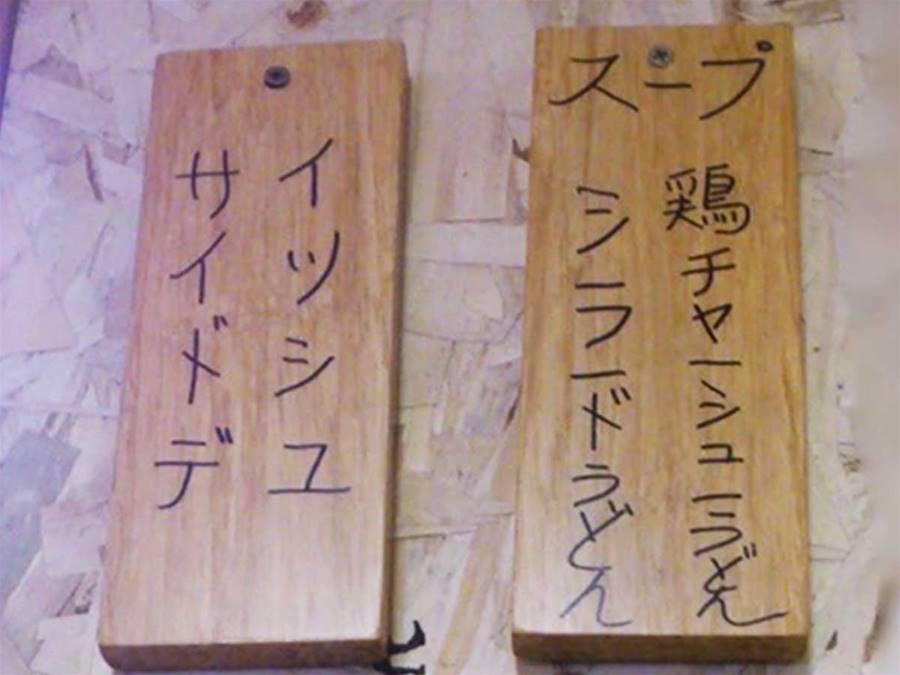 サイドデ
イツシユ
スープ
鶏チャーシューうどん
シーフードうどん